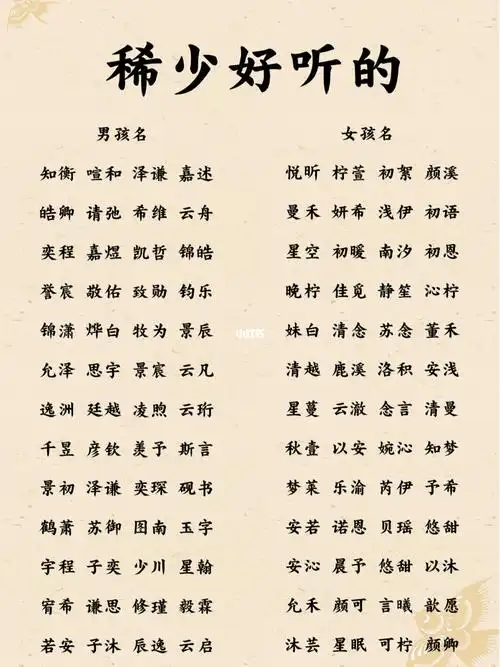 稀少好听的
男孩名
知衡 喧和 泽谦 嘉述
皓卿 请弛 希维 云舟
奕程 嘉煜 凯哲 锦皓
誉宸 敬佑 致勋 钧乐
锦潇 烨白 牧为 景辰
允泽 思宇 景宸 云凡
逸洲 廷越 凌煦 云珩
千昱 彦钦 羡予 斯言
景初 泽谦 奕琛 砚书
鹤萧 苏御 图南 玉字
宇程 子奕 少川 星翰
宥希 谦思 修瑾 毅霖
若安 子沐 辰逸 云启
女孩名
悦昕 柠萱 初絮 颜溪
曼禾 妍希 浅伊 初语
星空 初暖 南汐 初恩
晚柠 佳觅 静笙 沁柠
妹白 清念 苏念 董禾
清越 鹿溪 洛积 安浅
星蔓 云澈 念言 清曼
秋壹 以安 婉沁 知梦
梦菜 乐渝 芮伊 予希
安若 诺恩 贝瑶 悠甜
安沁 晨予 悠甜 以沐
允禾 颜可 言曦 歆愿
沐芸 星眠 可柠 颜卿
小红书